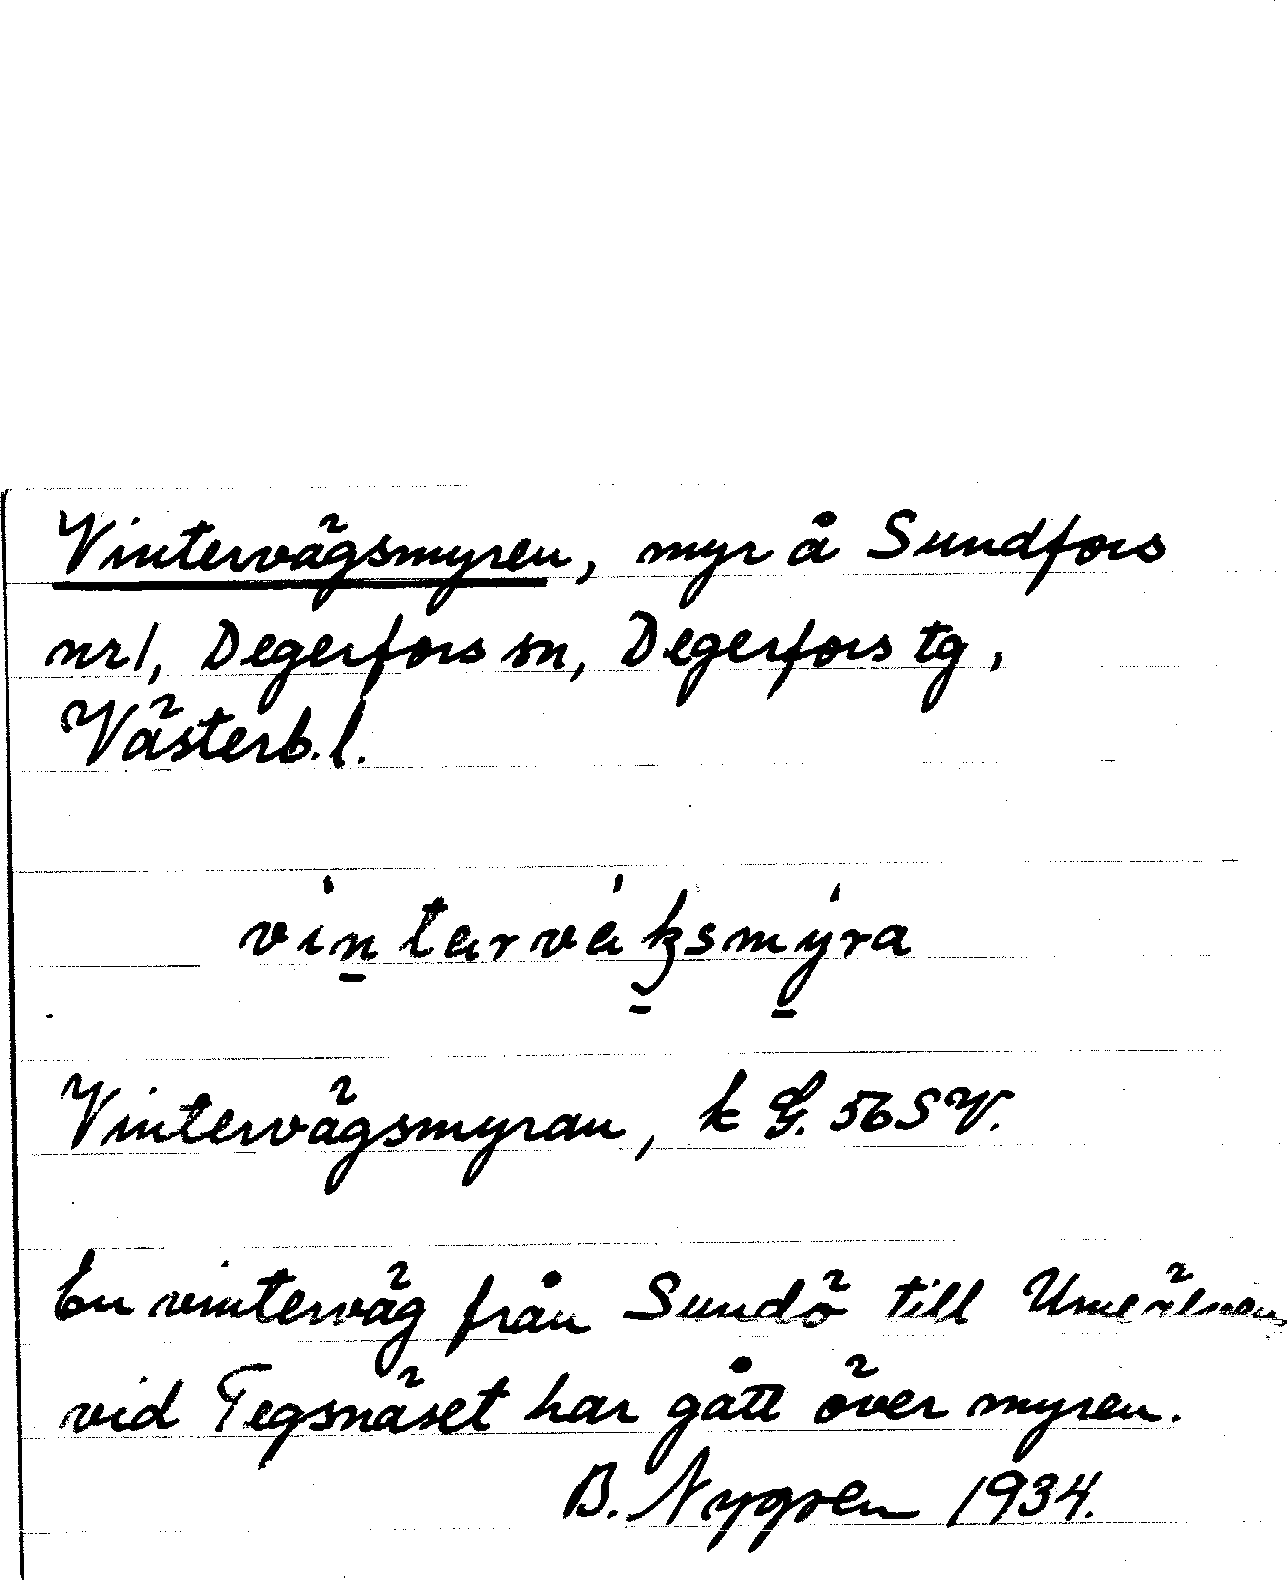 Vintervägsmyren, myr å Sundfors
nr 1, Degerfors sn, Degerfors tg,
Västerb. l.
vintarváksmýra
Vintervägsmyran, k G. 56 SV.
En vinterväg från Sundö till Umeälven
vid Tegsnäset har gått över myren.
B. Nygren 1934.